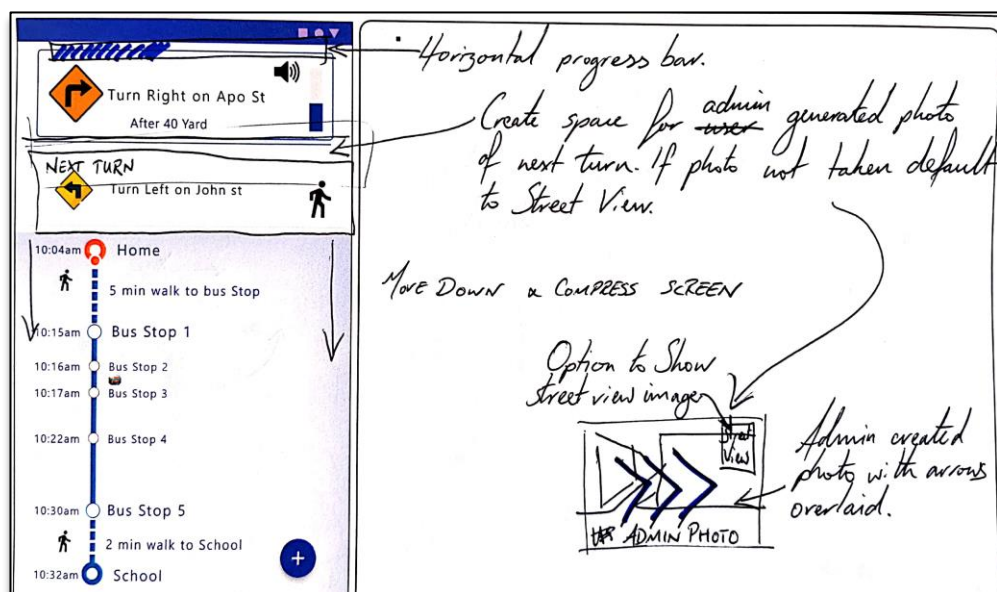 Turn Right on Apo St
After 40 Yard
NEXT TURN
Turn Left on John st
10:04am Home
5 min walk to bus Stop
10:15am Bus Stop 1
10:16am Bus Stop 2
10:17am Bus Stop 3
10:22am Bus Stop 4
10:30am Bus Stop 5
2 min walk to School
10:32am School
+
Horizontal progress bar.
Create space for admin user generated photo
of next turn. If photo not taken default
to Street View.
MOVE DOWN & COMPRESS SCREEN
Option to Show
street view image
Street
View
ADMIN PHOTO
Admin created
photo with arrows
overlaid.